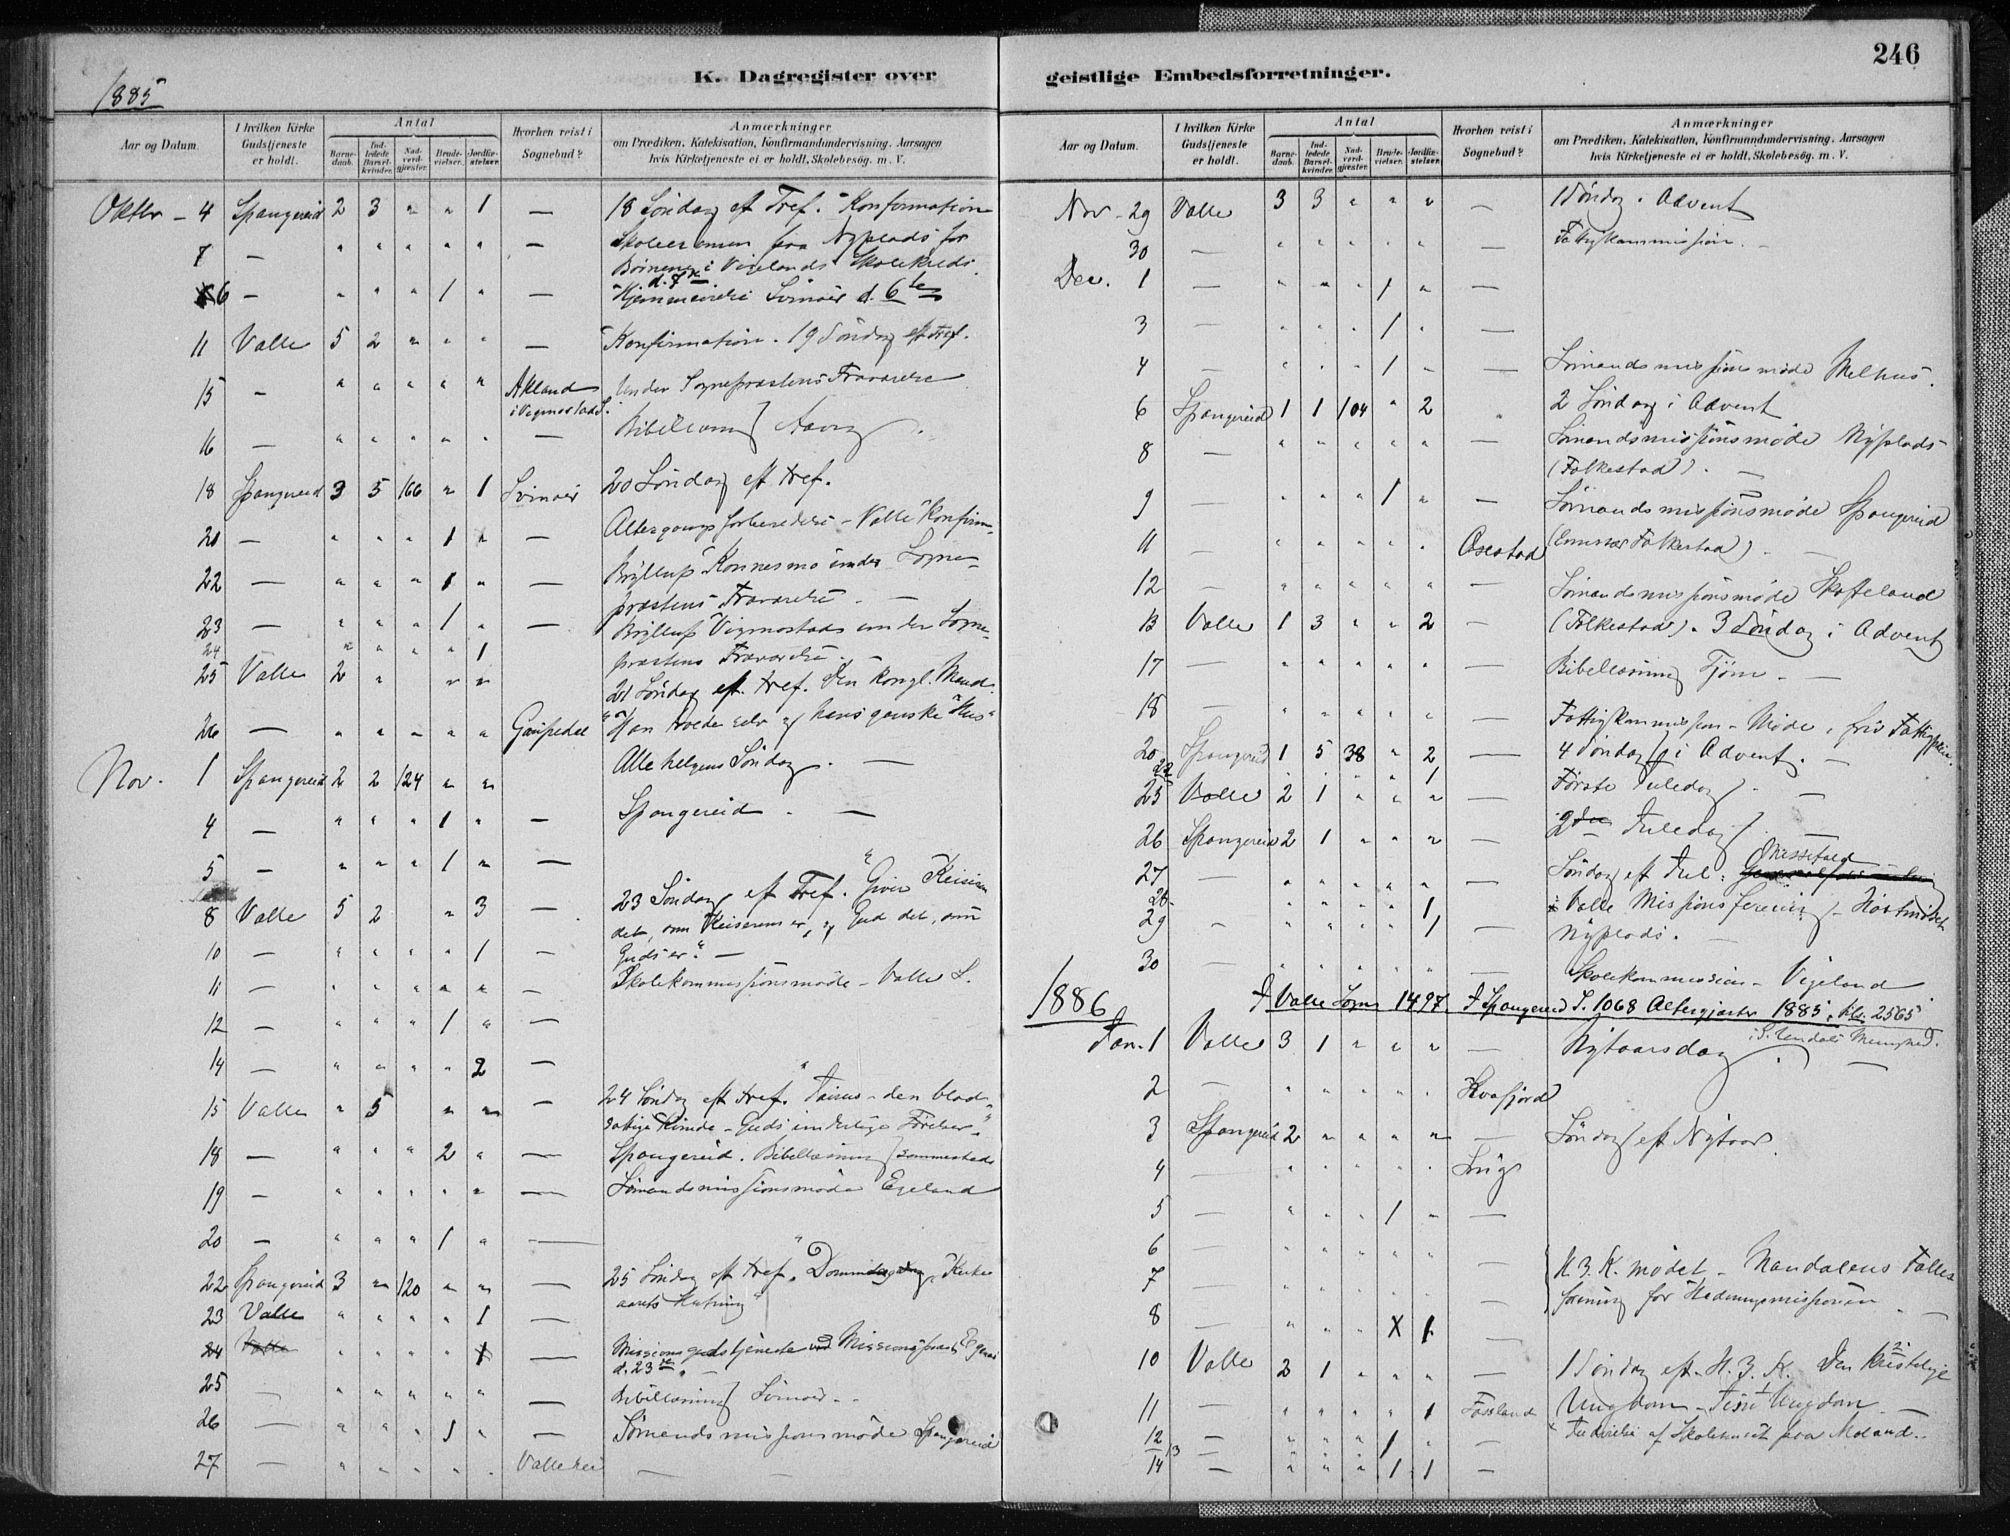 1885
K. Dagregister over
Aar og Datum.
I hvilken Kirke Gudstjeneste er holdt.
Antal
Barne-daab.
Ind-ledede Barsel-kvinder.
Nad-verd-gjæster.
Brude-vielser.
Jordfæ-stelser.
Hvorhen reist i Sognebud?
Anmærkninger
om Prædiken, Katekisation, Konfirmandundervisning. Aarsagen
hvis Kirketjeneste ei er holdt. Skolebesög. m. V.
Oktbr - 4 Spangereid 2 3 " " 1 — 18 Søndag eft Tref. - Konfirmation
7 — " " " " " — paa Nyplads for
Børnene i Vigelands Skolekreds
d. 7
6 — " " " 1 " — Svinøer d. 6te
11 Valle 5 2 " " " — Konfirmation. 19 Søndag eft Tref.
15 - " " " " " Akland Under Sognepræstens Fraværelse
i Vigmostad S.
16 — " " " " " — Bibellæsning
18 Spangereid 3 5 166 " 1 Svinøer 20 Søndag eft tref.
Altergangsforberedelse - Valle Konfirm.
20 — " " " 1 " —
22 — " " " 1 " — Bryllup Konnesmo under Sogne-
præstens Fraværelse. —
23 — " " " 1 " — Bryllup Vigmostads under Sogne-
24 " " " " 1 præstens Fraværelse. —
25 Valle 2 " " " 21 Søndag eft. tref. Den kongl. Mand.
26 — " " " " " Gaupedal "Han troede selv og hans ganske Hus"
Nov. 1 Spangereid 2 2 124 " " Alle helgens Søndag. —
4 — " " " 1 " — Spangereid. —
5 — " " " 1 " —
8 Valle 5 2 " 3 — 23 Søndag eft Tref. "Giver Keiseren
det, som Keiserens er, og Gud det, som
10 — " " " " 1 — Guds er." —
11 — " " " " " — Skolekommissionsmøde - Valle S.
12 — " " " 1 " —
14 — " " " " 2 —
15 Valle " 5 " " — 24 Søndag eft tref. "Jairus - den blod-
sottige Kvinde - Guds inderlige
18 — " " " 2 " — Spangereid. Bibellæsning
19 — " " " " " — Sømandsmissionsmøde Egeland
20 — " " " 1 " —
22 Spangereid 3 " 120 " " — 25 Søndag eft tref. " Kirke
aarets Slutning"
23 Valle " " " " 1
24 Valle " " " " 1 — Missionsgudstjeneste ved Missionspræst
d. 23
25 — " " " " " — Bibellæsning Svinøer. -
26 — " " " 1 " — Sømandsmissionsmøde Spangereid
27 — " " " " " Valle — —
246
geistlige Embedsforretninger.
Aar og Datum.
I hvilken Kirke Gudstjeneste er holdt.
Antal
Barne-daab.
Ind-ledede Barsel-kvinder.
Nad-verd-gjæster.
Brude-vielser.
Jordfæ-stelser.
Hvorhen reist i Sognebud?
Anmærkninger
om Prædiken, Katekisation, Konfirmandundervisning. Aarsagen
hvis Kirketjeneste ei er holdt, Skolebesög. m. V.
Nov - 29 Valle 3 3 " " " — 1 Søndag i Advent
30 — " " " " " — Fattigkommission. —
Dec. 1 — " " " 1 " —
3 — " " " 1 " —
4 — " " " 1 " — Sømandsmissionsmøde Melhus.
6 Spangereid 1 1 104 " 2 " 2 Søndag i Advent
8 — " " " " " — Sømandsmissionsmøde Nyplads
(Folkestad). —
9 — " " " 1 " — Sømandsmissionsmøde Spangereid
11 — " " " " " Osestad (Emissær Folkestad) —
12 — " " " " " — Sømandsmissionsmøde Skofteland
13 Valle 1 3 " " 2 — (Folkestad). 3 Søndag i Advent
17 — " " " " " — Bibellæsning Tjøm. —
18 — " " " " " — Fattigkommission - Møde,
20 Spangereid 1 5 38 " 2 — 4 Søndag i Advent. —
22 " " " " 1
25 Valle 2 1 " " " — Første Juledag. —
26 Spangereid 2 1 " " " — 2den Juledag. —
27 — " " " " " — Søndag eft Jul: Messefald
28 " " " " 1 i Valle Missionsforening - Høstmødet
29 - " " " " 1 — Nyplads.
30 — " " " " " — Skolekommission - Vigeland
1886
I Valle Sogn 1497. I Spangereid S. 1068 Altergjæster 1885, 2565
i S. Undals Menighed.
Jan. 1 Valle 3 1 " " " — Nytaarsdag. —
2 — " " " " " Kvafjord
3 Spangereid 2 " " " " — Søndag eft Nytaar.
4 — " " " " "
5 — " " " 1 " —
6 — " " " " " —
7 — " " " " " — H. 3. K. mødet - Mandalens Fælles
forening for Hedningemissionen
8 — " " " X 1 —
10 Valle 2 1 " " " — 1 Søndag eft. H. 3. K. Den kristelige
11 — " " " " 1 Fossland Ungdom - Jesu Ungdom —
12 — " " " 1 " — Indvielse af Skolehuset paa Moland. -
13
14 — " " " 1 1 —